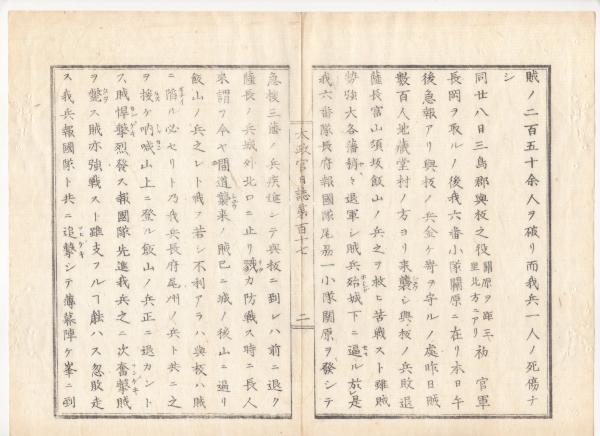 賊ノ二百五十余人ヲ破リ而我兵一人ノ死傷ナ
シ
同廿八日三島郡與板之役 關原ヲ距三里北方ニアリ 初 官軍
長岡ヲ取ルノ後我六番小隊關原ニ在リ本日午
後急報アリ與板ノ兵金ケ嵜ヲ守ルノ處昨日賊
數百人地藏堂村ノ方ヨリ来襲シ與板ノ兵敗退
薩長富山須坂飯山ノ兵之ヲ救ヒ苦戦スト雖賊
勢強大各藩稍々退軍シ賊兵殆城下ニ逼ル於是
我六番隊長府報國隊尾州一小隊關原ヲ發シテ
太政官日誌第百十七
二
急援三藩ノ兵疾進シテ與板ニ到レハ前ニ退ク
薩長ノ兵城外北口ニ止リ戮力防戦ス時ニ長人
来謂ヲ今ヤ間道襲来ノ賊已ニ城ノ後山ニ逼リ
飯山ノ兵之レト戦フ若シ不利アラハ與板ハ賊
ニ陥ル必セリト乃我兵長府尾州ノ兵ト共ニ之
ヲ援ケ吶喊山上ニ登ル飯山ノ兵正ニ退カント
ス賊悍撃烈發ス報國隊先進我兵之ニ次奮撃賊
ヲ斃ス賊亦強戦スト雖支フルヿ能ハス忽敗走
ス我兵報國隊ト共ニ追撃シテ薄暮陣ケ峯ニ到